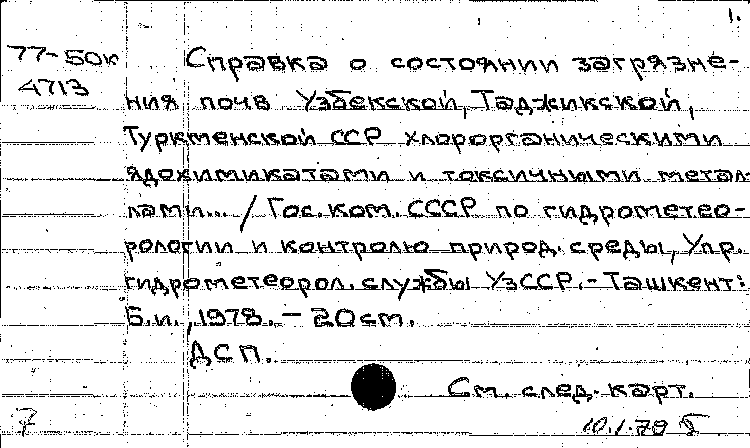 1.
77-50к
4713
Справка о состоянии загрязне-
ния почв Узбекской, Таджикской,
Туркменской ССР хлорорганическими
ядохимикатами и токсичными метал-
лами... / Гос. ком. СССР по гидрометео-
рологии и контролю природ. среды, Упр.
гидрометеорол. службы УзССР. - Ташкент:
Б.и., 1978. - 20см.
ДСП.
См. след. карт.
7
10.1.79